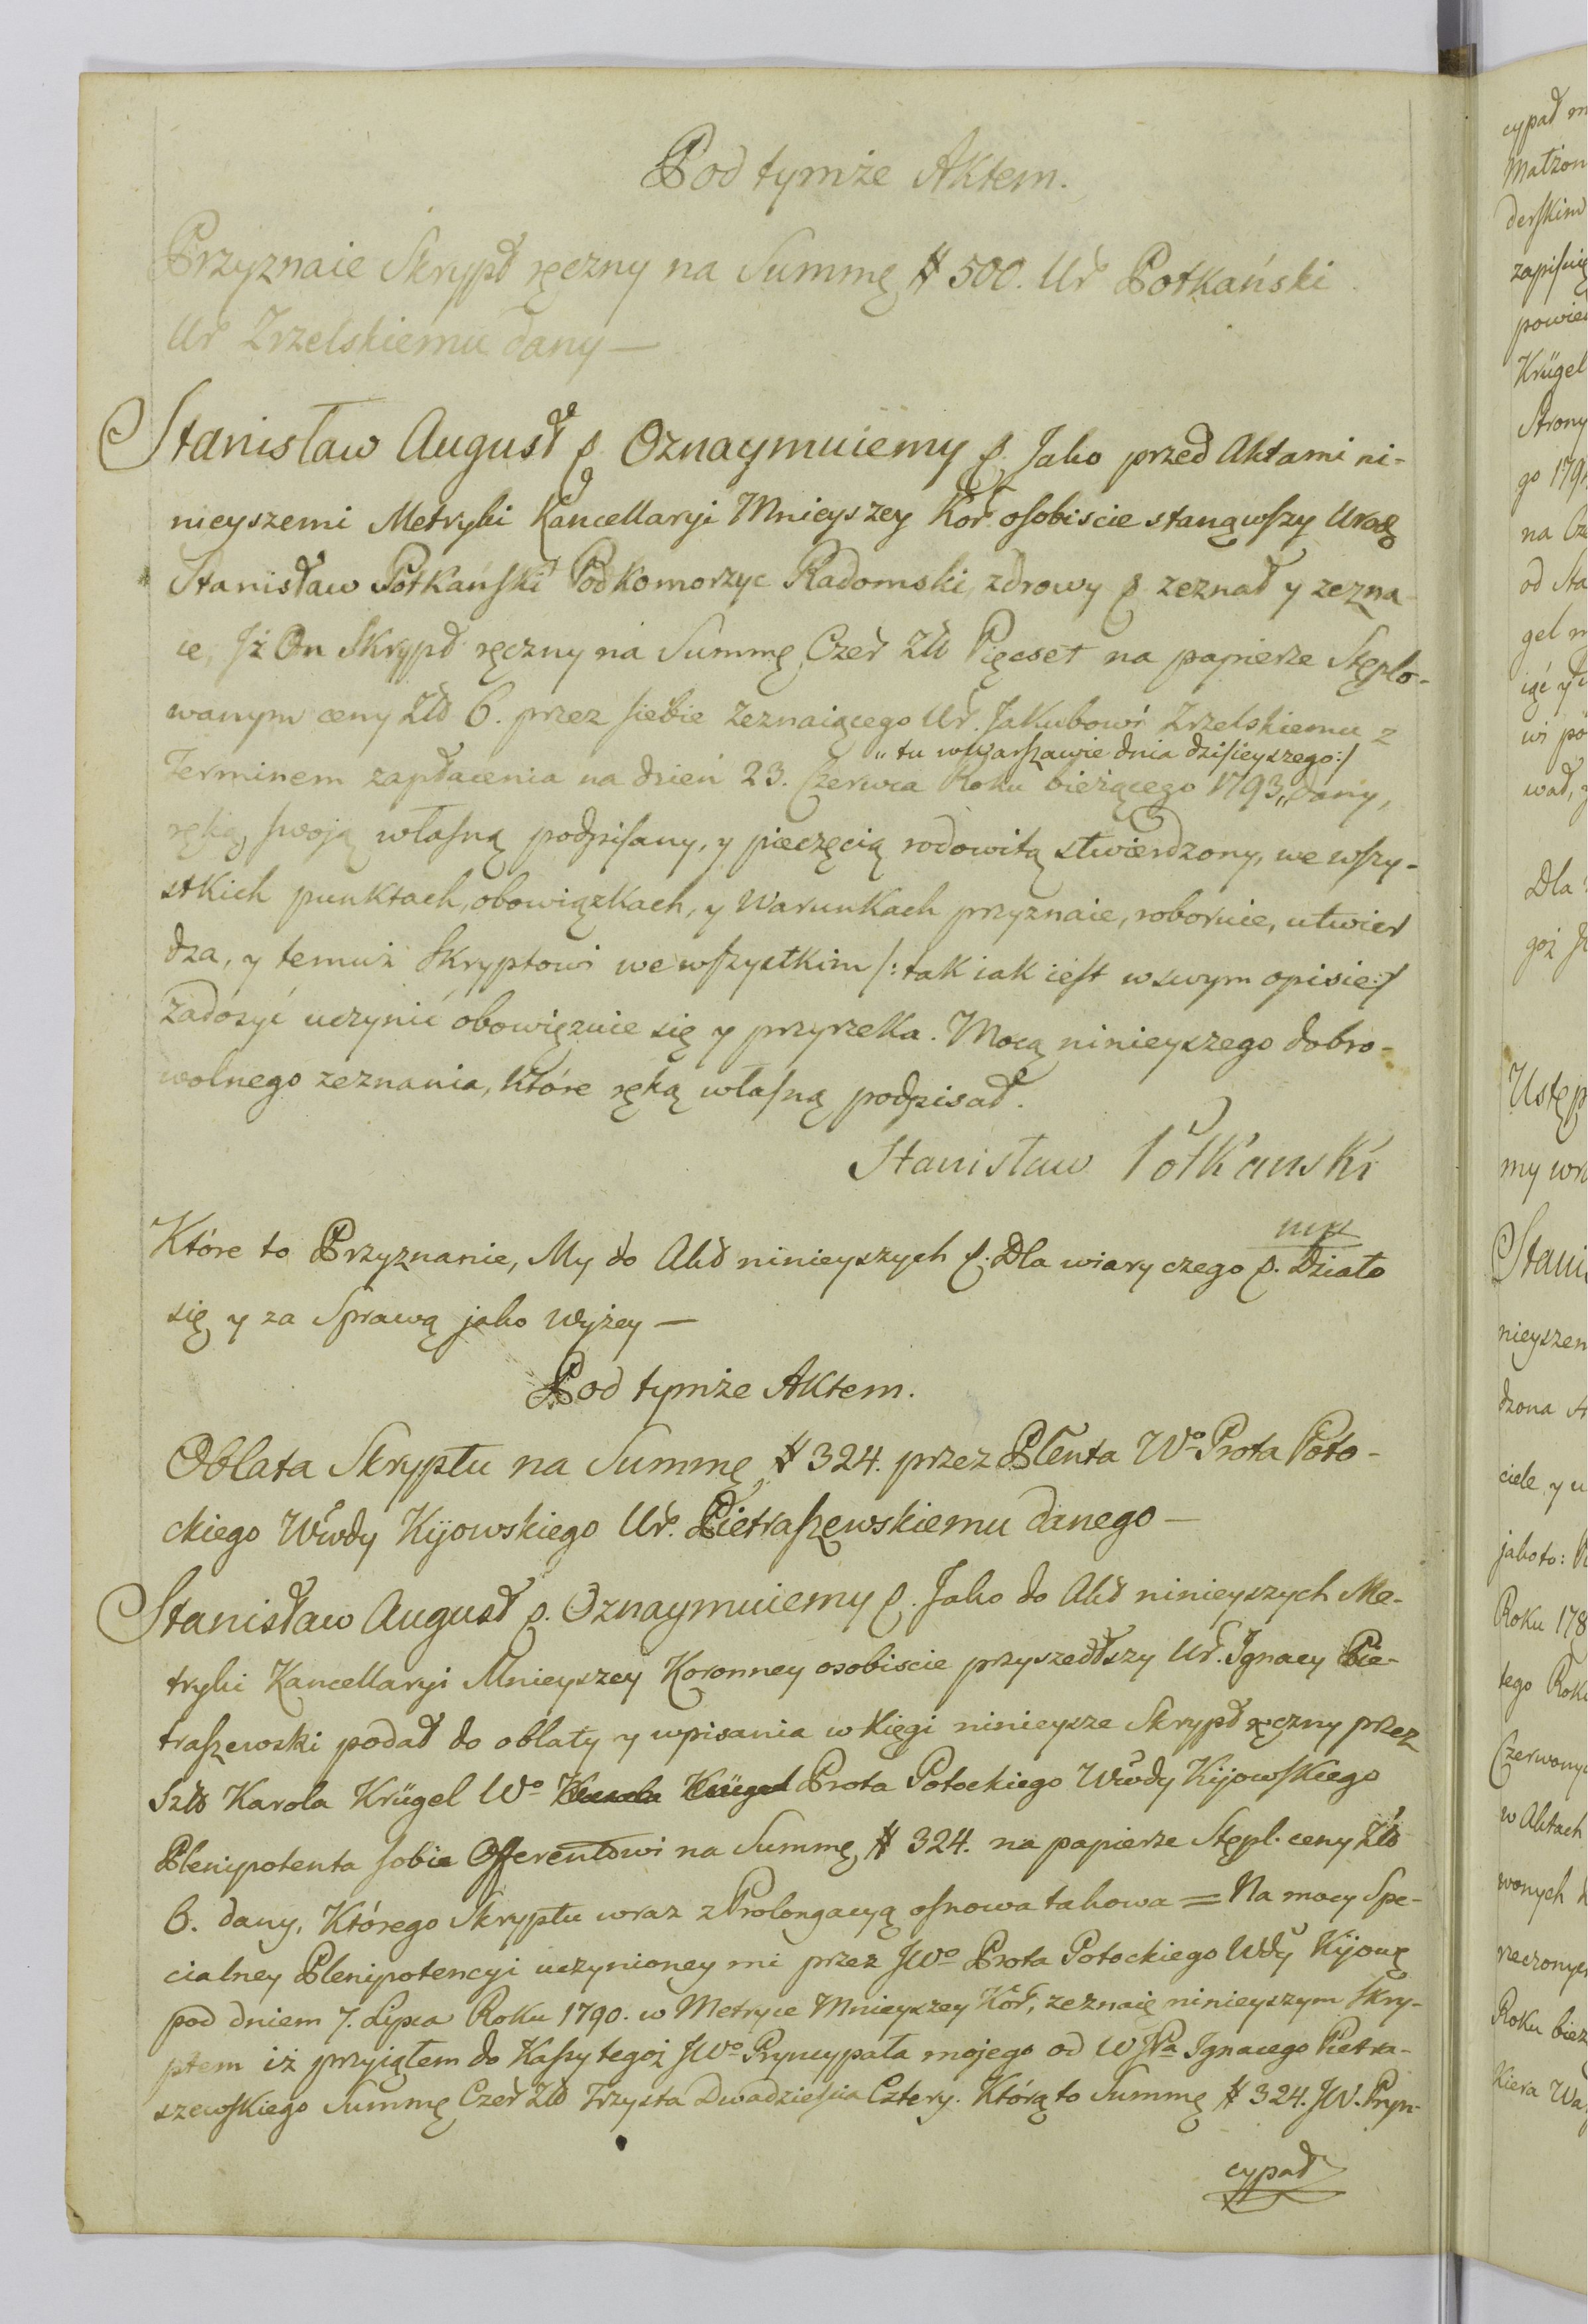 Pod tymże Aktem.
Przyznaie Skrypt ręczny na Summę # 500. Ur Potkański
Ur Zrzelskiemu dany —
Stanisław August p. Oznaymuiemy p. Jako przed Aktami ni-
nieyszemi Metryki Kancellaryi Mnieyszey Kor. osobiscie stanąwszy Urodz
Stanisław Potkański Podkomorzyc Radomski, zdrowy p. zeznał y zezna-
ie, Jż On Skrypt ręczny na Summę Czer Złt Pięcset na papierze Stęplo-
wanym ceny Złt 6. przez siebie zeznaiącego Ur. Jakubowi Zrzelskiemu z
„tu w Warszawie dnia dzisieyszego:/
Terminem zapłacenia na dzień 23. Czerwca Roku bieżącego 1793„ dany,
ręką swoją własną podpisany, y pieczęcią rodowitą stwierdzony, we wszy-
stkich punktach, obowiązkach, y Warunkach przyznaie, roboruie, utwier
dza, y temuż Skryptowi we wszystkim /: tak iak iest w swym opisie :/
zadosyć uczynić obowięzuie się y przyrzeka. Mocą ninieyszego dobro-
wolnego zeznania, które ręką własną podpisał.
Stanisław Potkanski
mp
Które to Przyznanie, My do Akt ninieyszych p. Dla wiary czego p. Działo
się y za Sprawą jako wyżey —
Pod tymże Aktem.
Oblata Skryptu na Summę # 324. przez Plenta Wo Prota Poto-
ckiego Wwdy Kijowskiego Ur. Pietraszewskiemu danego —
Stanisław August p. Oznaymuiemy p. Jako do Akt ninieyszych Me-
tryki Kancellaryi Mnieyszey Koronney osobiscie przyszedłszy Ur. Ignacy Pie-
traszewski podał do oblaty y wpisania w Kięgi ninieysze Skrypt ręczny przez
Szlt Karola Krügel Wo Karola Krügel Prota Potockiego Wwdy Kijowskiego
Plenipotenta sobie Offerentowi na Summę # 324. na papierze Stępl. ceny Złt
6. dany, Którego Skryptu wraz z Prolongacyą osnowa takowa = Na mocy Spe-
cialney Plenipotencyi uczynioney mi przez JWo Prota Potockiego Wdy Kijowg
pod dniem 7. Lipca Roku 1790. w Metryce Mnieyszey Kor, zeznaię ninieyszym Skry-
ptem iż przyiąłem do Kassy tegoż JWo Pryncypała mojego od WJPa Ignacego Pietra-
szewskiego Summę Czer Złt Trzysta Dwadzieścia Cztery. Którą to Summę # 324. JW. Pryn-
cypał